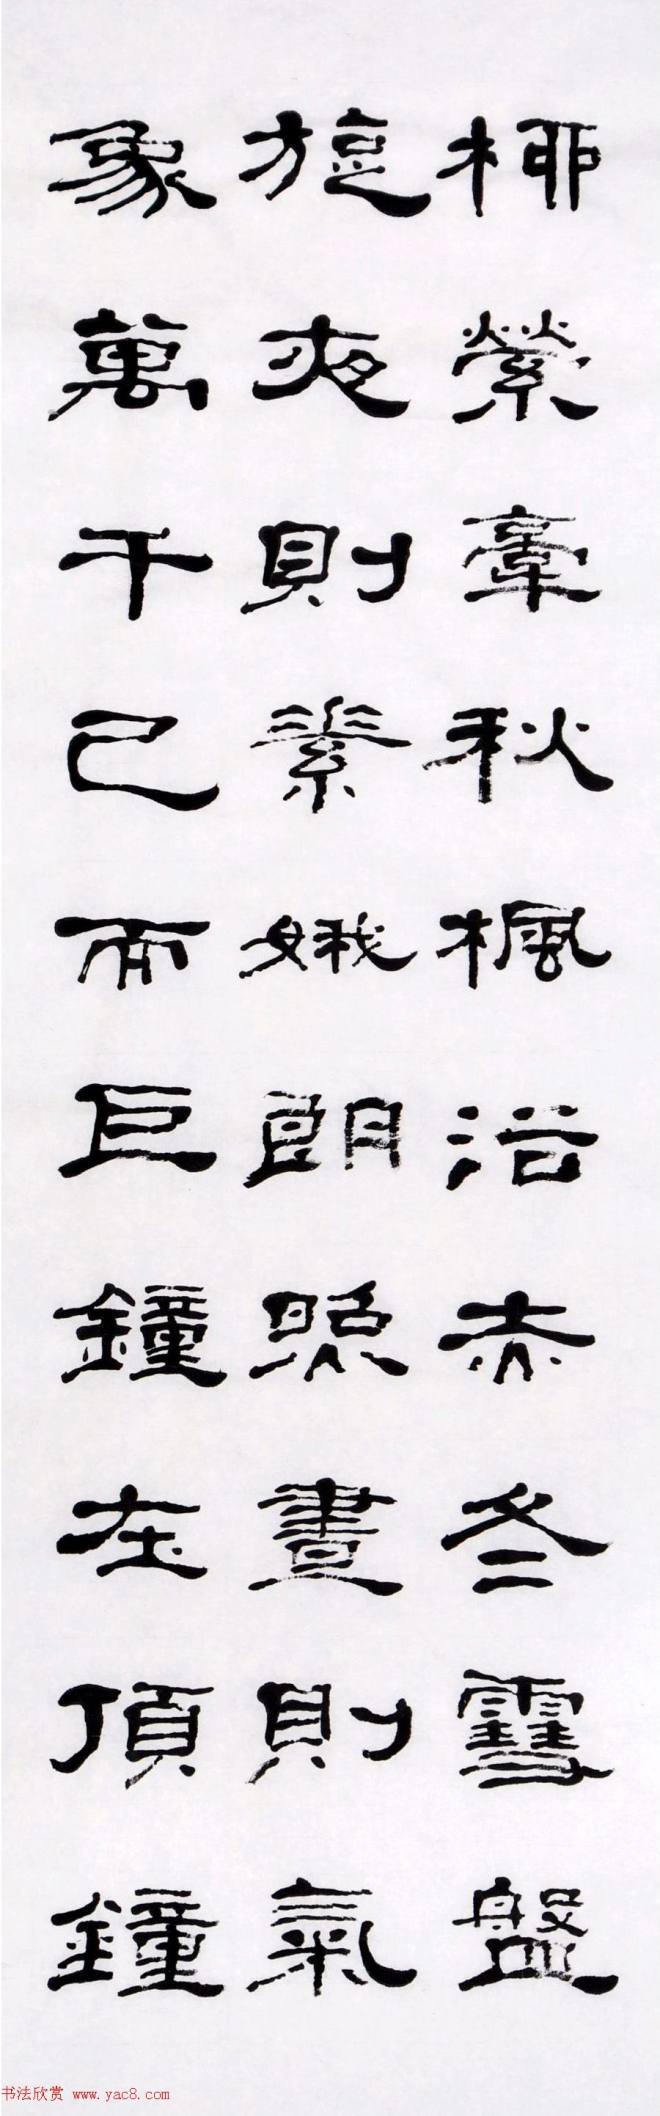 柳縈牽秋楓赤冬雪盤
旋夜則素娥朗照晝則氣
象萬千已而巨鐘在頂鐘
书法欣赏 www.yac8.com